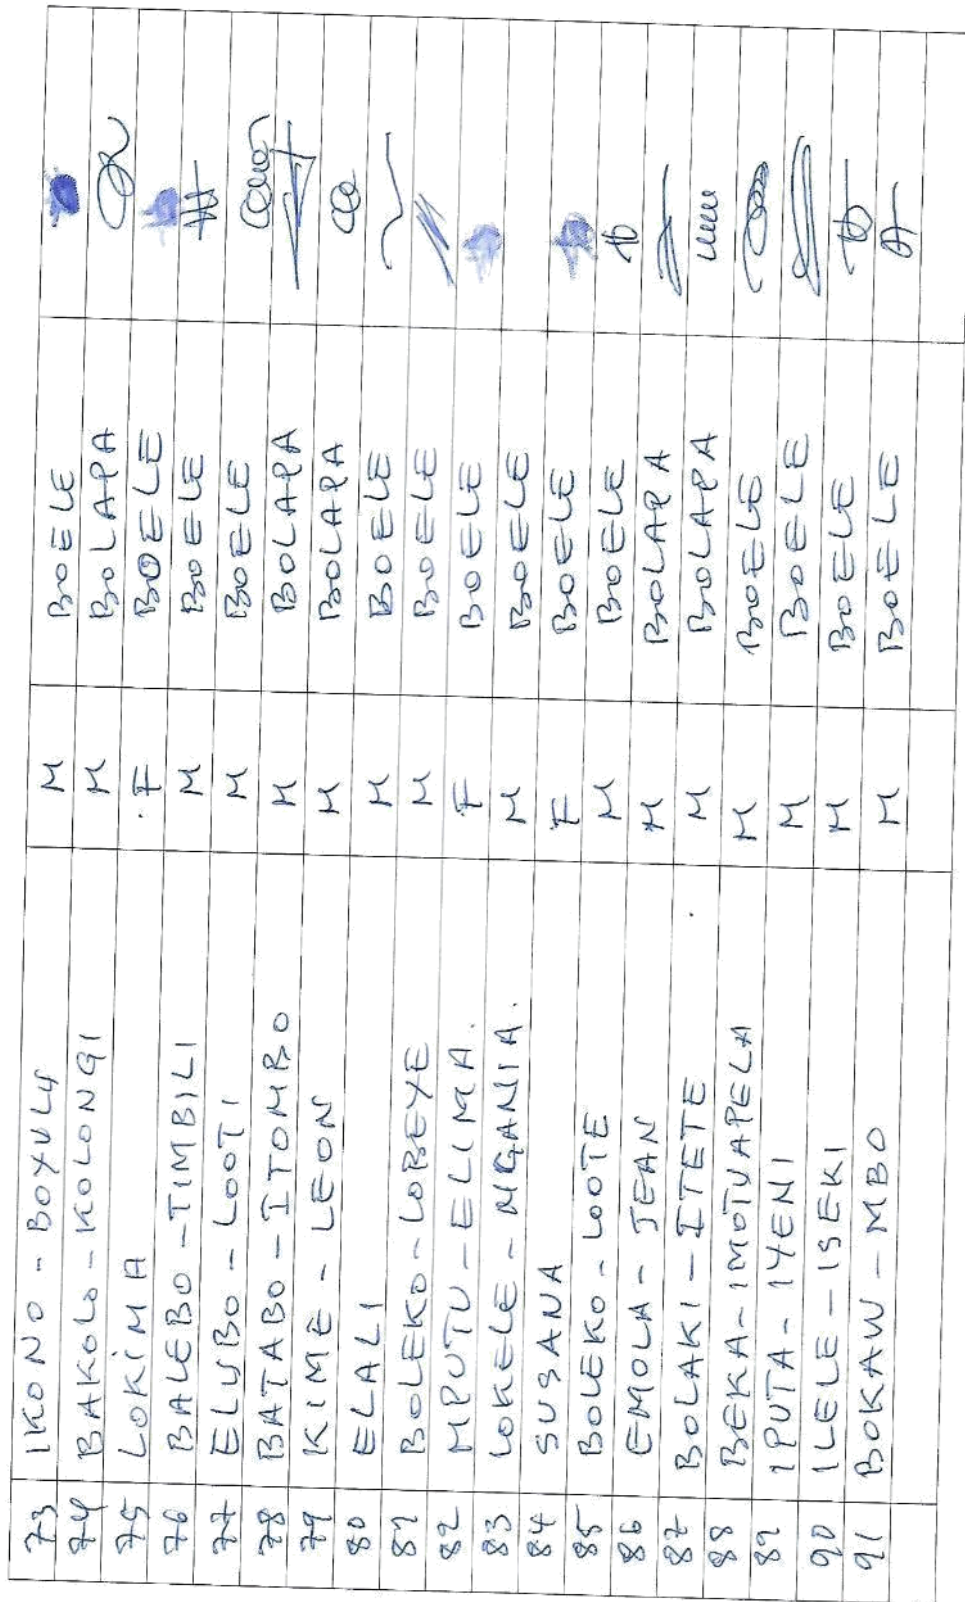 73 IKONO - BOYULU M BOELE
74 BAKOLO - KOLONGI M BOLAPA
75 LOKIMA F BOELE
76 BALEBO - TIMBILI M BOELE
77 ELUBO - LOOTI M BOELE
78 BATABO - ITOMBO M BOLAPA
79 KIME - LEON M BOLAPA
80 ELALI M BOELE
81 BOLEKO - LOBEYE M BOELE
82 MPUTU - ELIMA. F BOELE
83 LOKELE - NGANIA. M BOELE
84 SUSANA F BOELE
85 BOLEKO - LOOTE M BOELE
86 EMOLA - JEAN M BOLAPA
87 BOLAKI - ITETE M BOLAPA
88 BEKA - IMOTUAPELA M BOELE
89 IPUTA - IYENI M BOELE
90 ILELE - ISEKI M BOELE
91 BOKAW - MBO M BOELE